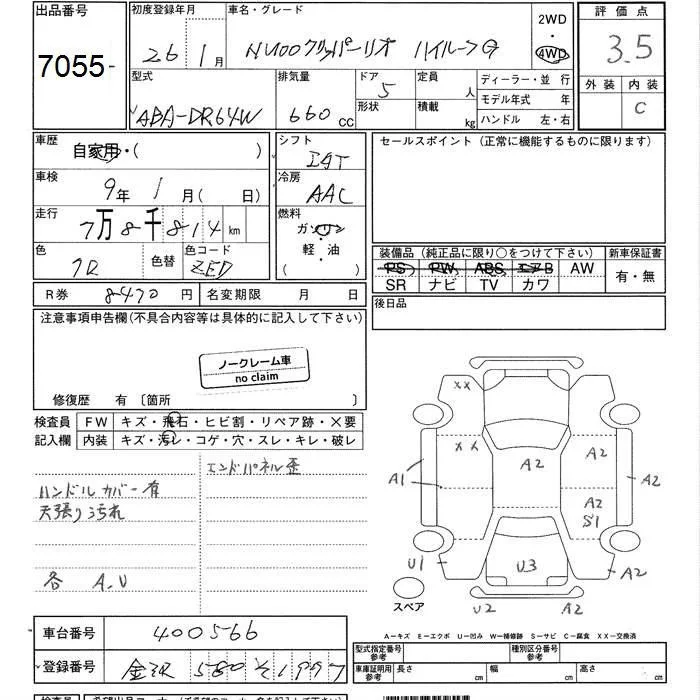 出品番号 7055-
初度登録年月日 26年 1月
車名・グレード NV100クリッパーリオ ハイルーフG
2WD ・ 4WD
評価点 3.5
外装 内装 C
型式 ABA-DR64W
排気量 660 cc
ドア 5 形状
定員 人 積載 kg
ディーラー・並行
モデル年式 年
ハンドル 左・右
車歴 自家用・( )
シフト IAT
セールスポイント(正常に機能するものに限ります)
車検 9年 1月( 日)
冷房 AAC
走行 7万8千814km
燃料 ガソリン・軽・油 ( )
色 色替 色コード ZED
装備品(純正品に限り○をつけて下さい) 新車保証書
PS PW ABS エアB AW 有・無
SR ナビ TV カワ
R券 8470円 名変期限 月 日
後日品
注意事項申告欄(不具合内容等は具体的に記入して下さい)
ノークレーム車
no claim
修復歴 有〔箇所 〕
検査員 FW キズ・飛石・ヒビ割・リペア跡・×要
記入欄 内装 キズ・汚レ・コゲ・穴・スレ・キレ・破レ
エンドパネル歪
ハンドルカバー有
天張り汚れ
各 A.U
XX
XX A2 A2
A1 A2
A2
S1
U1 U3 A2
スペア U2 A2
A-キズ E-エクボ U-凹み W-補修跡 S-サビ C-腐食 XX-交換済
車台番号 400566
型式指定番号 参考 種別区分番号 参考
登録番号 580 そ1997
車庫証明用 参考 長さ cm 幅 cm 高さ cm